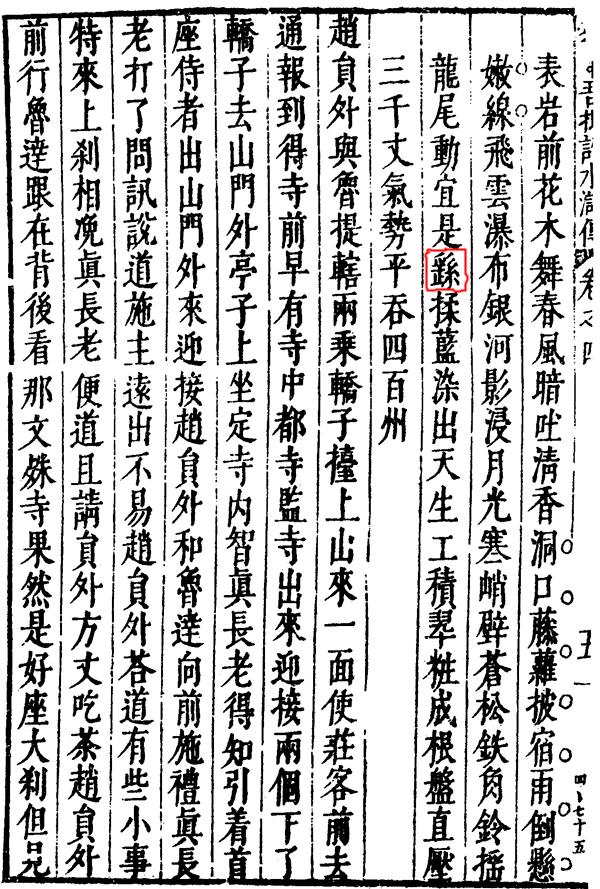 水滸傳 卷之四
五
四·七十五
表岩前花木舞春風暗吐清香洞口藤蘿披宿雨倒懸
嫩線飛雲瀑布銀河影浸月光寒峭壁蒼松鉄角鈴搖
龍尾動宜是揉藍染出天生工積翠粧成根盤直壓
三千丈氣勢平吞四百州
趙貟外與魯提轄兩乘轎子擡上山來一面使莊客前去
通報到得寺前早有寺中都寺監寺出來迎接兩個下了
轎子去山門外亭子上坐定寺内智眞長老得知引着首
座侍者出山門外來迎接趙貟外和魯達向前施禮眞長
老打了問訊說道施主遠出不易趙貟外荅道有些小事
特來上刹相浼眞長老便道且請貟外方丈吃茶趙貟外
前行魯達跟在背後看那文殊寺果然是好座大刹但見